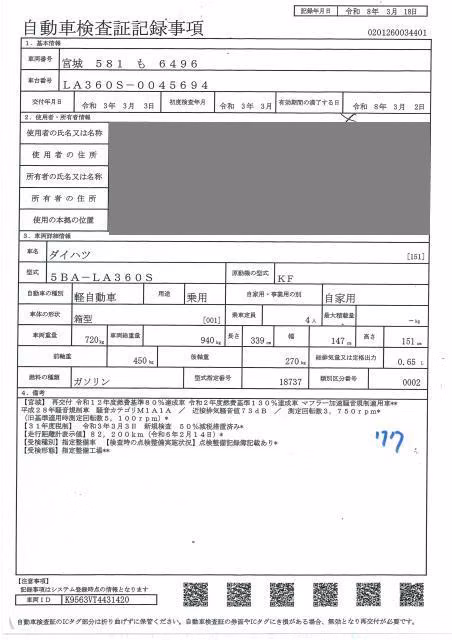 記録年月日 令和 8年 3月 18日
自動車検査証記録事項
0201260034401
1. 基本情報
車両番号 宮城 581 も 6496
車台番号 LA360S-0045694
交付年月日 令和 3年 3月 3日 初度検査年月 令和 3年 3月 有効期間の満了する日 令和 8年 3月 2日
2. 使用者・所有者情報
使用者の氏名又は名称
使用者の住所
所有者の氏名又は名称
所有者の住所
使用の本拠の位置
3. 車両詳細情報
車名 ダイハツ [151]
型式 5BA-LA360S 原動機の型式 KF
自動車の種別 軽自動車 用途 乗用 自家用・事業用の別 自家用
車体の形状 箱型 [001] 乗車定員 4人 最大積載量 -kg
車両重量 720kg 車両総重量 940kg 長さ 339cm 幅 147cm 高さ 151cm
前軸重 450kg 後軸重 270kg 総排気量又は定格出力 0.65 L
燃料の種類 ガソリン 型式指定番号 18737 類別区分番号 0002
4. 備考
【宮城】 再交付 令和12年度燃費基準80%達成車 令和2年度燃費基準130%達成車 マフラー加速騒音規制適用車*
平成28年騒音規制車 騒音カテゴリM1A1A / 近接排気騒音値73dB / 測定回転数3,750rpm*
(旧基準適用時測定回転数5,100rpm)*
【31年度税制】 令和3年3月3日 新規検査 50%減税措置済み*
【走行距離計表示値】82,200km(令和6年2月14日)*
【受検種別】指定整備車 【検査時の点検整備実施状況】点検整備記録簿記載あり*
【受検形態】指定整備工場**
【注意事項】
記録事項はシステム登録時点の情報となります
車両ID K9563VT4431420
自動車検査証のICタグ部分は折り曲げずに保管ください。自動車検査証の券面やICタグにき損がある場合、無効となり再交付が必要です。